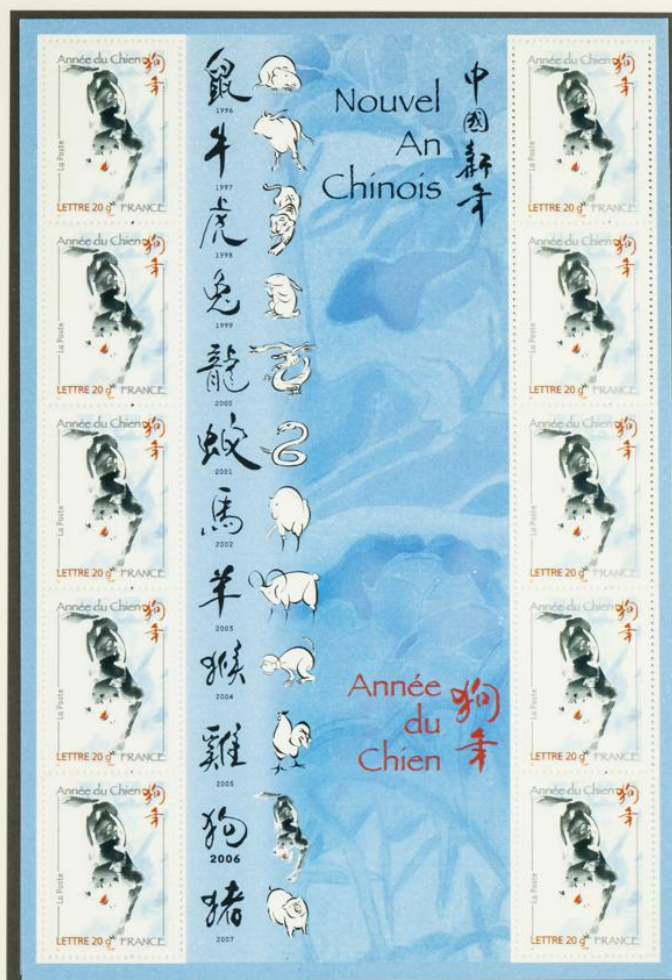 Année du Chien
狗年
La Poste
LETTRE 20 g FRANCE
Année du Chien
狗年
La Poste
LETTRE 20 g FRANCE
Année du Chien
狗年
La Poste
LETTRE 20 g FRANCE
Année du Chien
狗年
La Poste
LETTRE 20 g FRANCE
Année du Chien
狗年
La Poste
LETTRE 20 g FRANCE
鼠
1996
牛
1997
虎
1998
兔
1999
龍
2000
蛇
2001
馬
2002
羊
2003
猴
2004
雞
2005
狗
2006
猪
2007
Nouvel
An
Chinois
中國新年
Année
du
Chien
狗年
Année du Chien
狗年
La Poste
LETTRE 20 g FRANCE
Année du Chien
狗年
La Poste
LETTRE 20 g FRANCE
Année du Chien
狗年
La Poste
LETTRE 20 g FRANCE
Année du Chien
狗年
La Poste
LETTRE 20 g FRANCE
Année du Chien
狗年
La Poste
LETTRE 20 g FRANCE